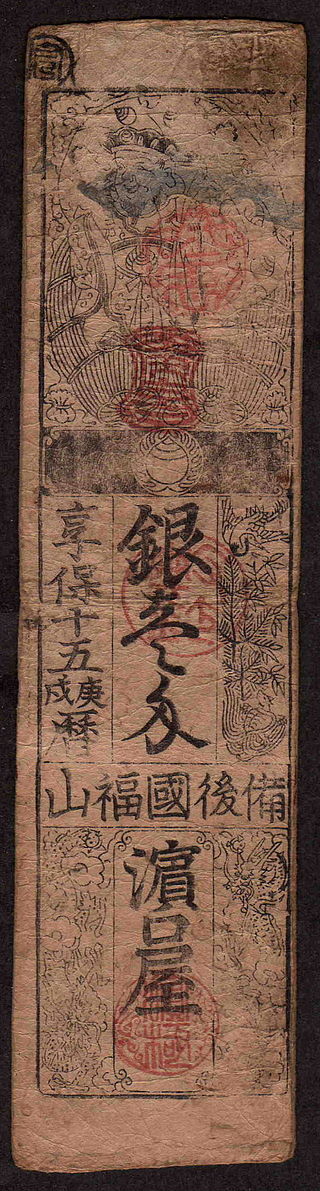 銀壱匁
享保十五庚戌暦
備後國福山
濵口屋